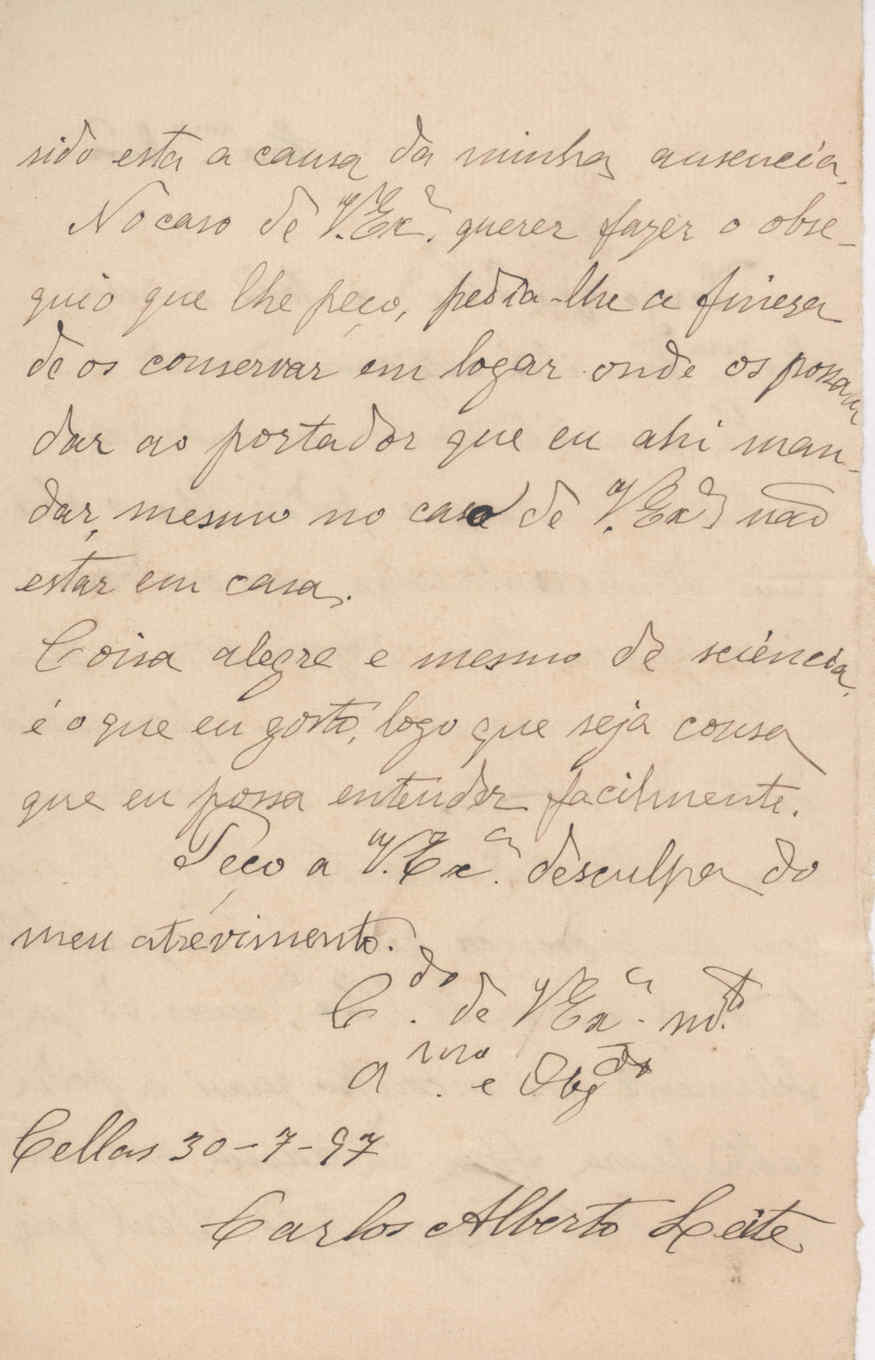 sido esta a causa da minha ausencia.
No caso de V. Exª. querer fazer o obse-
quio que lhe peço, pedia-lhe a fineza
de os conservar em logar onde os possam
dar ao portador que eu ahi man-
dar, mesmo no caso de V. Exª não
estár em casa.
Coisa alegre e mesmo de sciéncia,
é o que eu gosto, logo que seja cousa
que eu possa entender facilmente.
Peço a V. Exª. desculpa do
meu atrevimento.
C.do de V Exª. mt.º
a.mo e Obgdo
Cellas 30-7-97
Carlos Alberto Leite